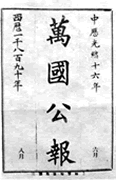 中歷光緒十六年
六月
萬國公報
西歷一千八百九十年
八月